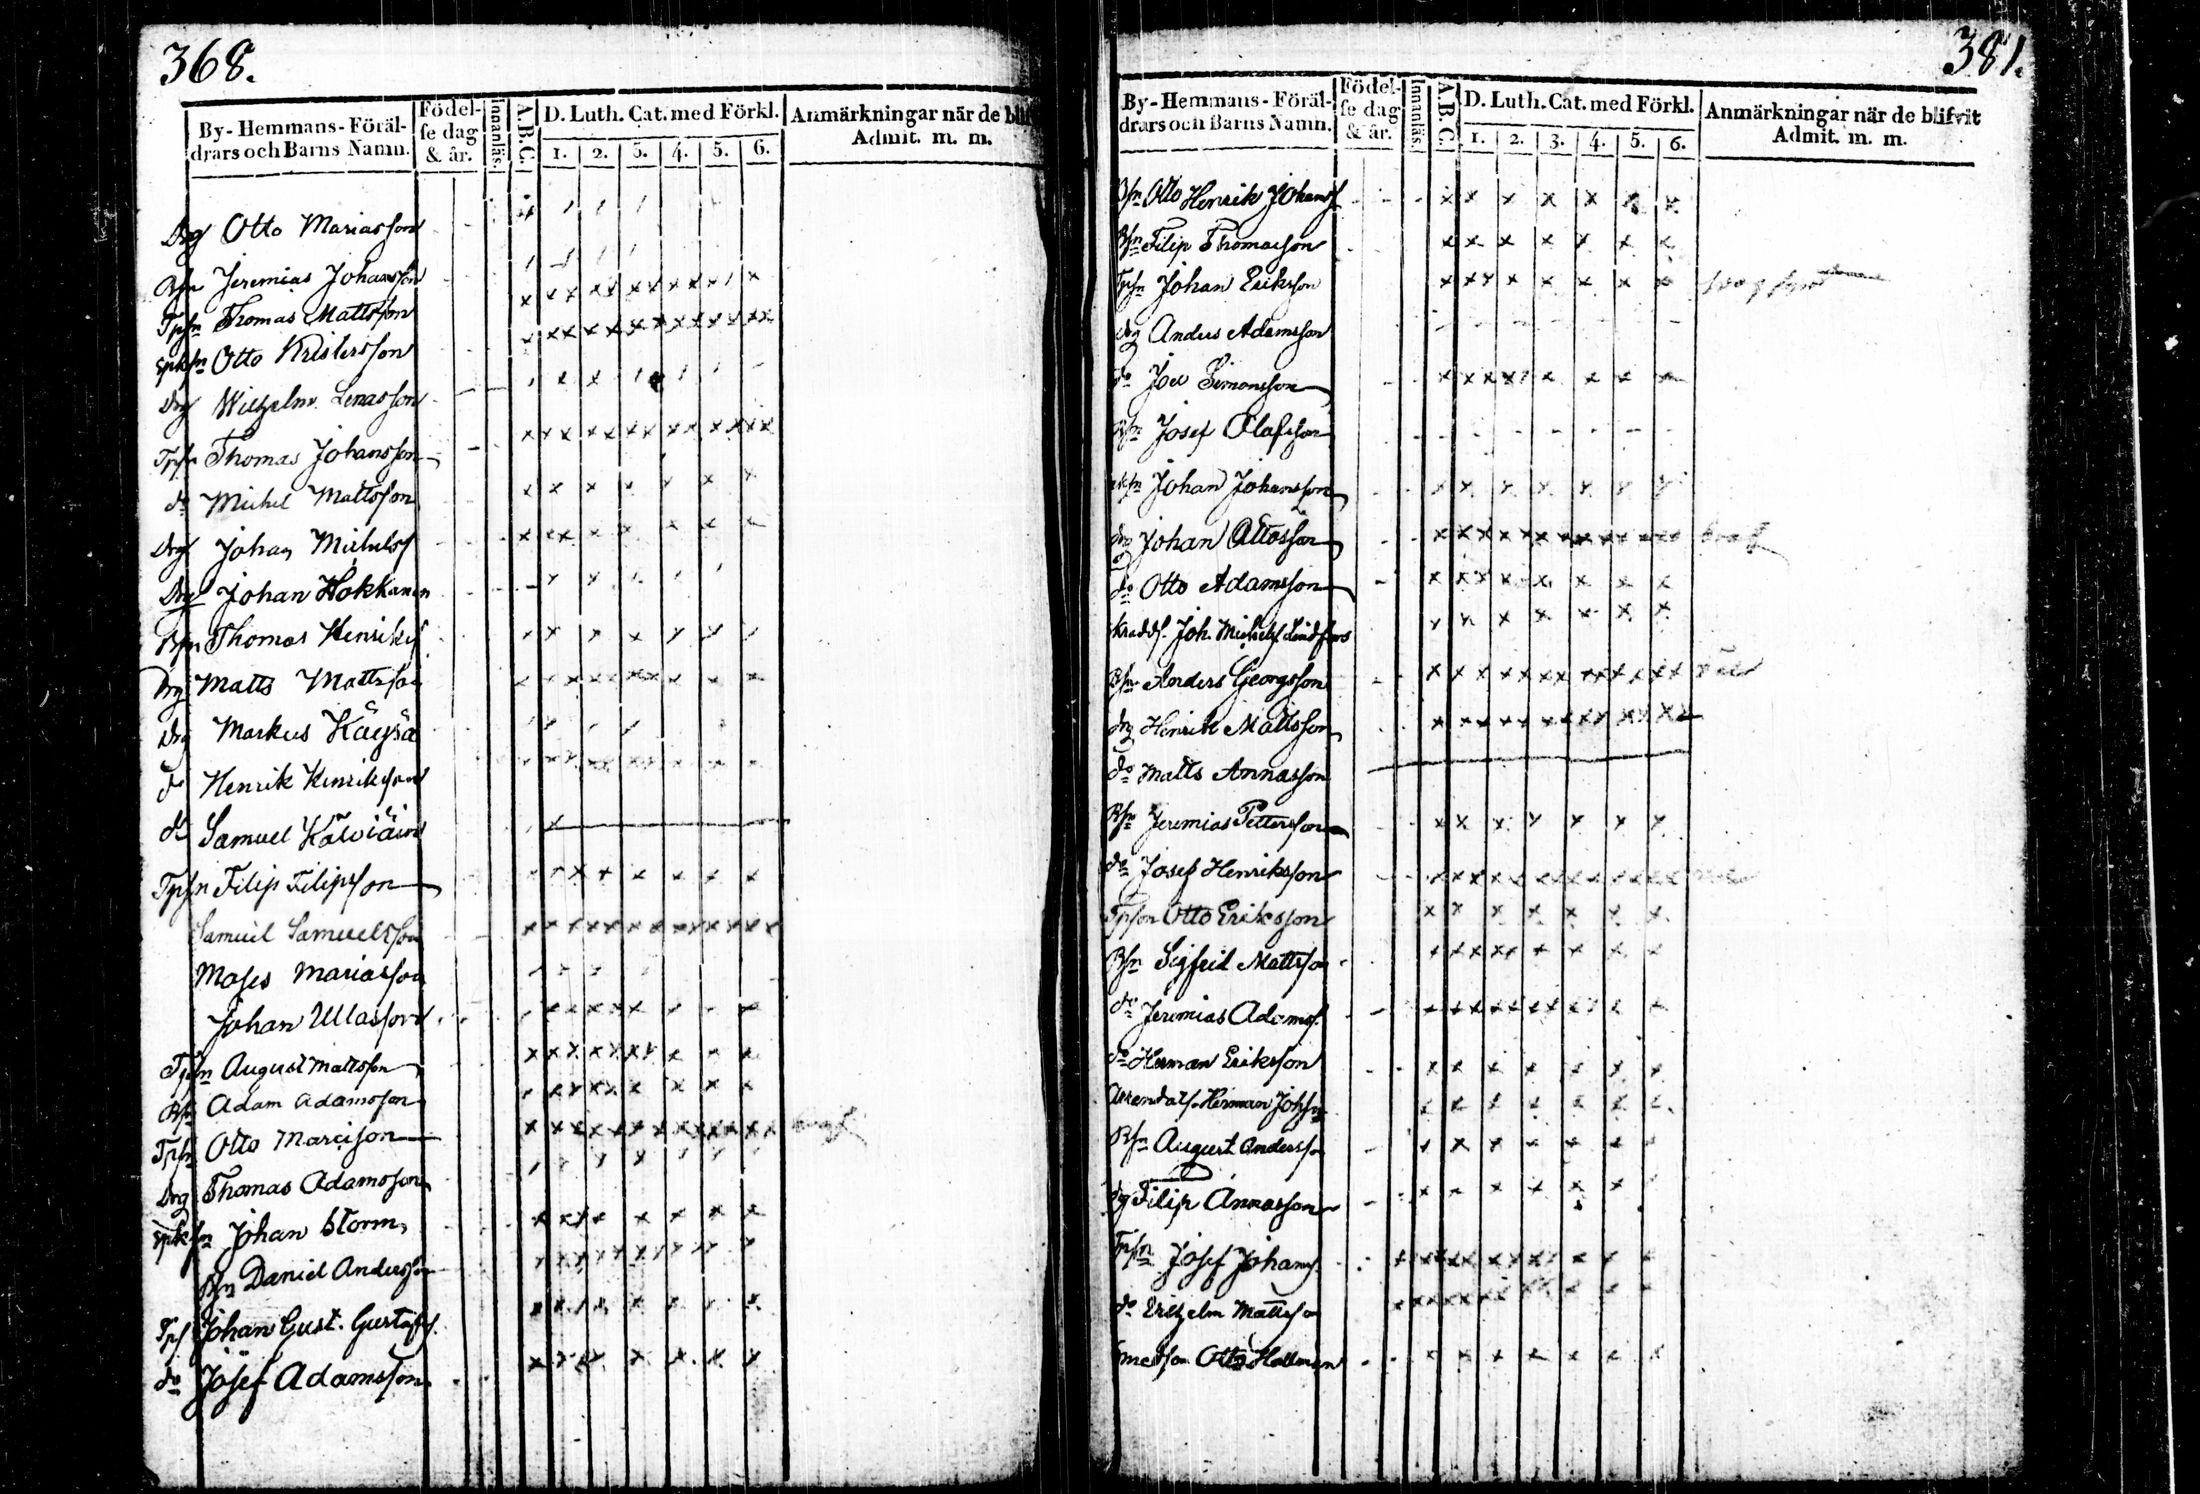 368.
By-Hemmans-Föräl-
drars och Barns Namn.
Födel-
se dag
& år.
Innanläs.
A.B.C.
D. Luth. Cat. med Förkl.
1. 2. 3. 4. 5. 6.
Anmärkningar när de blif
Admit. m. m.
Drg Otto Mariasson
Bsn Jeremias Johansson
Tpsn Thomas Mattsson
Spksn Otto Kristersson
Drg Wilhelm Lenasson
Tpsn Thomas Johansson
do Michel Mattsson
Drg Johan Michelss
Drg Johan Hokkanen
Bsn Thomas Henrikss
Drg Matts Mattsson
Drg Markus Käysä
do Henrik Henriksson
do Samuel
Tpsn Filip Filipsson
Samuel Samuelsson
Moses Mariasson
Johan Ullasson
Tpsn August Mattsson
Bsn Adam Adamsson
Tpsn Otto Marcisson
Drg Thomas Adamsson
Spksn Johan Storm
Bsn Daniel Andersson
Tps Johan Gust. Gustafs.
do Josef Adamsson
381.
By-Hemmans-Föräl-
drars och Barns Namn.
Födel-
se dag
& år.
Innanläs.
A.B.C.
D. Luth. Cat. med Förkl.
1. 2. 3. 4. 5. 6.
Anmärkningar när de blifvit
Admit. m. m.
Bsn Otto Henrik Johanss
Bsn Filip Thomasson
Tpsn Johan Eriksson
drg Anders Adamsson
do Joel Simonsson
Bsn Josef Olafsson
Johan Johansson
drg Johan Ottosson
do Otto Adamsson
Joh. Michelss Lindfors
Bsn Anders Georgsson
drg Henrik Mattsson
do Matts Annasson
Bsn Jeremias Pettersson
do Josef Henriksson
Tpson Otto Eriksson
Bsn Sigfrid Mattsson
do Jeremias Adamss.
do Herman Eriksson
Arrendats. Herman Johsn
Bsn August Andersso
dg Filip Annasson
Tpsn Josef Johanss.
do Wilhelm Mattsso
Smedson Otto Hallman